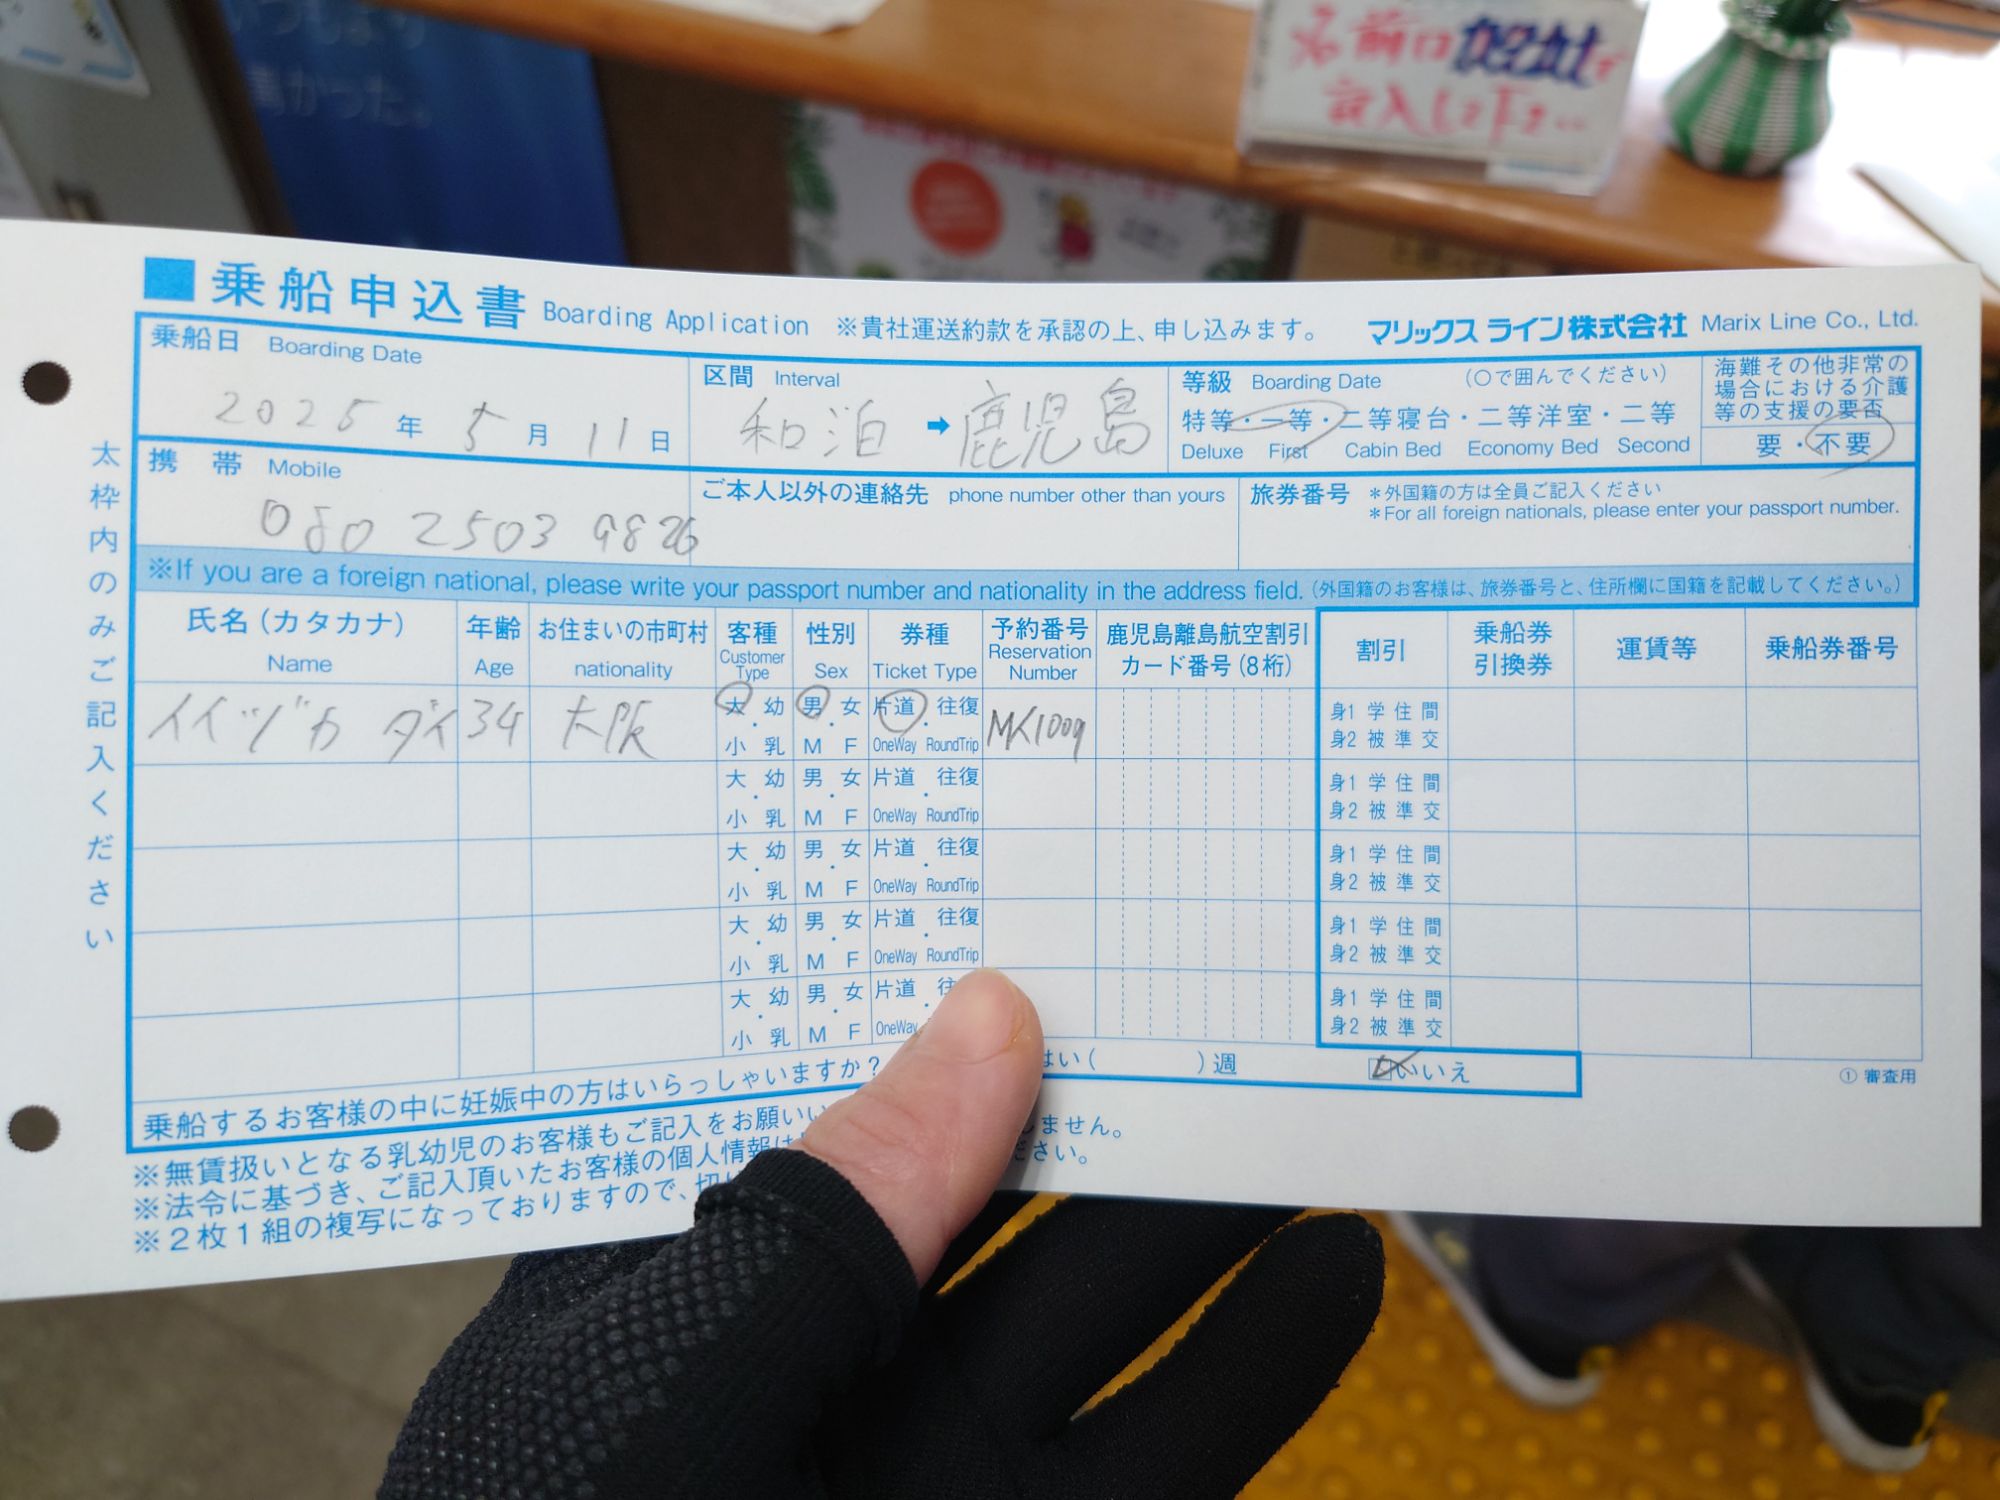 名前はカタカナで
記入して下さい
高かった。
■乗船申込書 Boarding Application ※貴社運送約款を承認の上、申し込みます。 マリックスライン株式会社 Marix Line Co., Ltd.
太枠内のみご記入ください
乗船日 Boarding Date
2025年 5月 11日
区間 Interval
和泊 ➡ 鹿児島
等級 Boarding Date (○で囲んでください)
特等・一等・二等寝台・二等洋室・二等
Deluxe First Cabin Bed Economy Bed Second
海難その他非常の
場合における介護
等の支援の要否
要・不要
携帯 Mobile
080 2503 9826
ご本人以外の連絡先 phone number other than yours
旅券番号 *外国籍の方は全員ご記入ください
*For all foreign nationals, please enter your passport number.
※If you are a foreign national, please write your passport number and nationality in the address field. (外国籍のお客様は、旅券番号と、住所欄に国籍を記載してください。)
氏名(カタカナ) 年齢 お住まいの市町村 客種 性別 券種 予約番号 鹿児島離島航空割引 割引 乗船券 運賃等 乗船券番号
Name Age nationality Customer Type Sex Ticket Type Reservation Number カード番号(8桁) 引換券
イイヅカ ダイ 34 大阪 大 幼 男 女 片道 往復 MK1009 身1 学 住 間
小 乳 M F OneWay RoundTrip 身2 被 準 交
大 幼 男 女 片道 往復 身1 学 住 間
小 乳 M F OneWay RoundTrip 身2 被 準 交
大 幼 男 女 片道 往復 身1 学 住 間
小 乳 M F OneWay RoundTrip 身2 被 準 交
大 幼 男 女 片道 往復 身1 学 住 間
小 乳 M F OneWay RoundTrip 身2 被 準 交
大 幼 男 女 片道 往 身1 学 住 間
小 乳 M F OneWay 身2 被 準 交
乗船するお客様の中に妊娠中の方はいらっしゃいますか? はい( )週 □いいえ
① 審査用
※無賃扱いとなる乳幼児のお客様もご記入をお願いい
※法令に基づき、ご記入頂いたお客様の個人情報は しません。
※2枚1組の複写になっておりますので、切 ださい。